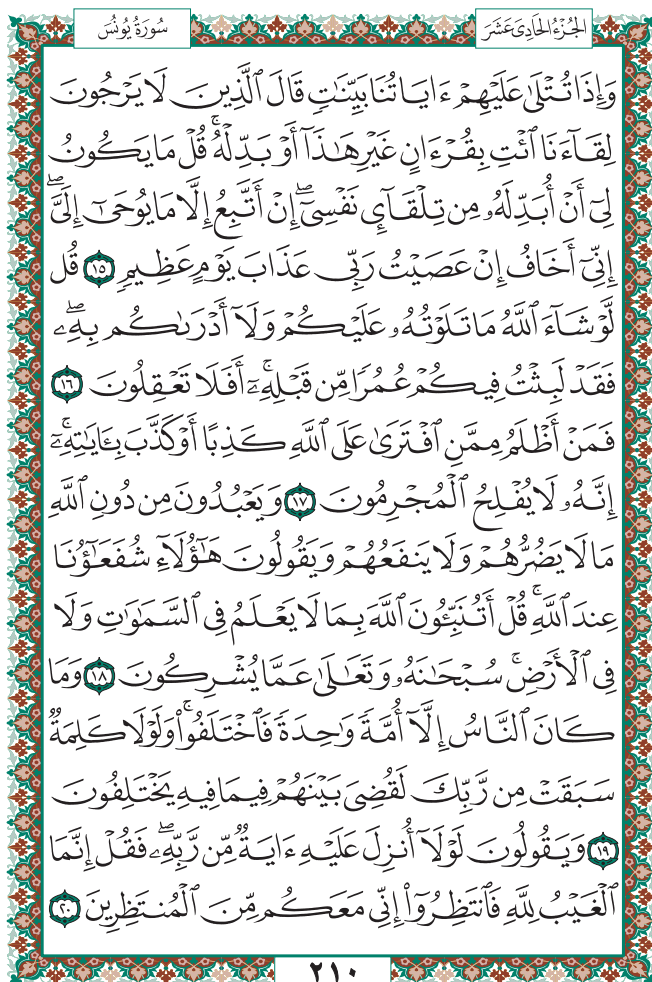 الجُزْءُ الحَادِىَ عَشَرَ
سُورَةُ يُونُسَ
وَإِذَا تُتْلَىٰ عَلَيْهِمْ ءَايَاتُنَا بَيِّنَٰتٍ قَالَ ٱلَّذِينَ لَا يَرْجُونَ
لِقَآءَنَا ٱئْتِ بِقُرْءَانٍ غَيْرِ هَٰذَآ أَوْ بَدِّلْهُۚ قُلْ مَا يَكُونُ
لِىٓ أَنْ أُبَدِّلَهُۥ مِن تِلْقَآئِ نَفْسِىٓۖ إِنْ أَتَّبِعُ إِلَّا مَا يُوحَىٰٓ إِلَىَّۖ
إِنِّىٓ أَخَافُ إِنْ عَصَيْتُ رَبِّى عَذَابَ يَوْمٍ عَظِيمٍ ١٥ قُل
لَّوْ شَآءَ ٱللَّهُ مَا تَلَوْتُهُۥ عَلَيْكُمْ وَلَآ أَدْرَىٰكُم بِهِۦۖ
فَقَدْ لَبِثْتُ فِيكُمْ عُمُرًا مِّن قَبْلِهِۦٓۚ أَفَلَا تَعْقِلُونَ ١٦
فَمَنْ أَظْلَمُ مِمَّنِ ٱفْتَرَىٰ عَلَى ٱللَّهِ كَذِبًا أَوْ كَذَّبَ بِـَٔايَٰتِهِۦٓۚ
إِنَّهُۥ لَا يُفْلِحُ ٱلْمُجْرِمُونَ ١٧ وَيَعْبُدُونَ مِن دُونِ ٱللَّهِ
مَا لَا يَضُرُّهُمْ وَلَا يَنفَعُهُمْ وَيَقُولُونَ هَٰٓؤُلَآءِ شُفَعَٰٓؤُنَا
عِندَ ٱللَّهِۚ قُلْ أَتُنَبِّـُٔونَ ٱللَّهَ بِمَا لَا يَعْلَمُ فِى ٱلسَّمَٰوَٰتِ وَلَا
فِى ٱلْأَرْضِۚ سُبْحَٰنَهُۥ وَتَعَٰلَىٰ عَمَّا يُشْرِكُونَ ١٨ وَمَا
كَانَ ٱلنَّاسُ إِلَّآ أُمَّةً وَٰحِدَةً فَٱخْتَلَفُوا۟ۚ وَلَوْلَا كَلِمَةٌ
سَبَقَتْ مِن رَّبِّكَ لَقُضِىَ بَيْنَهُمْ فِيمَا فِيهِ يَخْتَلِفُونَ
١٩ وَيَقُولُونَ لَوْلَآ أُنزِلَ عَلَيْهِ ءَايَةٌ مِّن رَّبِّهِۦۖ فَقُلْ إِنَّمَا
ٱلْغَيْبُ لِلَّهِ فَٱنتَظِرُوٓا۟ إِنِّى مَعَكُم مِّنَ ٱلْمُنتَظِرِينَ ٢٠
٢١٠